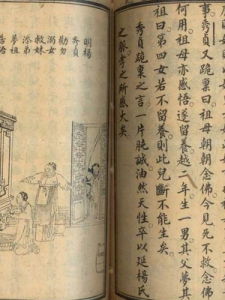 事秀貞又跪稟曰祖母朝朝念佛今見死不救念佛
何用祖母亦感悟遂留養越二年生一男其父夢其
祖曰第四女若不留養則此兒斷不能生矣
秀貞跪稟之言一片肫誠油然天性卒以延楊氏
之脈孝之所感大矣
明楊
秀貞
勸勿
溺女
救妹
添弟
夢祖